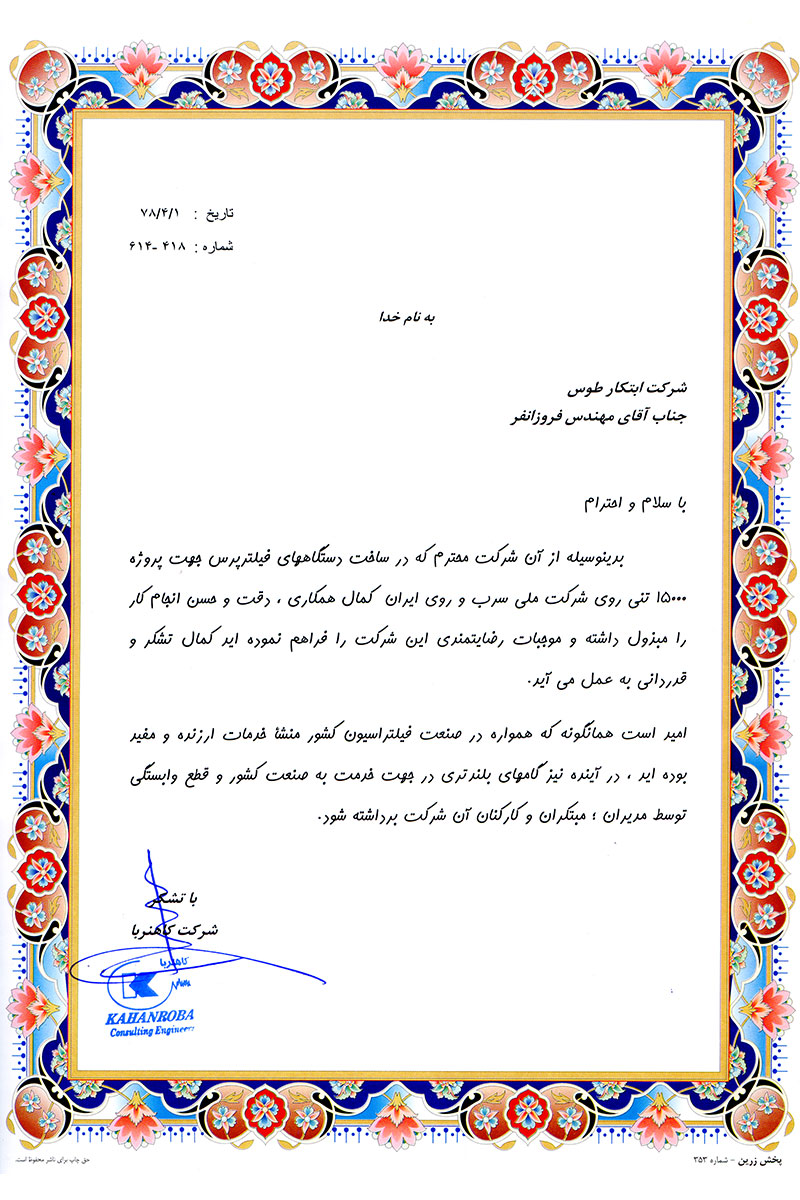 تاریخ : ۷۸/۴/۱
شماره : ۴۱۸ -۶۱۴
به نام خدا
شرکت ابتکار طوس
جناب آقای مهندس فروزانفر
با سلام و احترام
بدینوسیله از آن شرکت محترم که در ساخت دستگاههای فیلترپرس جهت پروژه
۱۵۰۰۰ تنی روی شرکت ملی سرب و روی ایران کمال همکاری ، دقت و حسن انجام کار
را مبذول داشته و موجبات رضایتمندی این شرکت را فراهم نموده اید کمال تشکر و
قدردانی به عمل می آید.
امید است همانگونه که همواره در صنعت فیلتراسیون کشور منشأ خدمات ارزنده و مفید
بوده اید ، در آینده نیز گامهای بلندتری در جهت خدمت به صنعت کشور و قطع وابستگی
توسط مدیران ؛ مبتکران و کارکنان آن شرکت برداشته شود.
با تشکر
شرکت کاهنربا
کاهنربا
KAHANROBA
Consulting Engineers
پخش زرین - شماره ۳۵۳
حق چاپ برای ناشر محفوظ است.